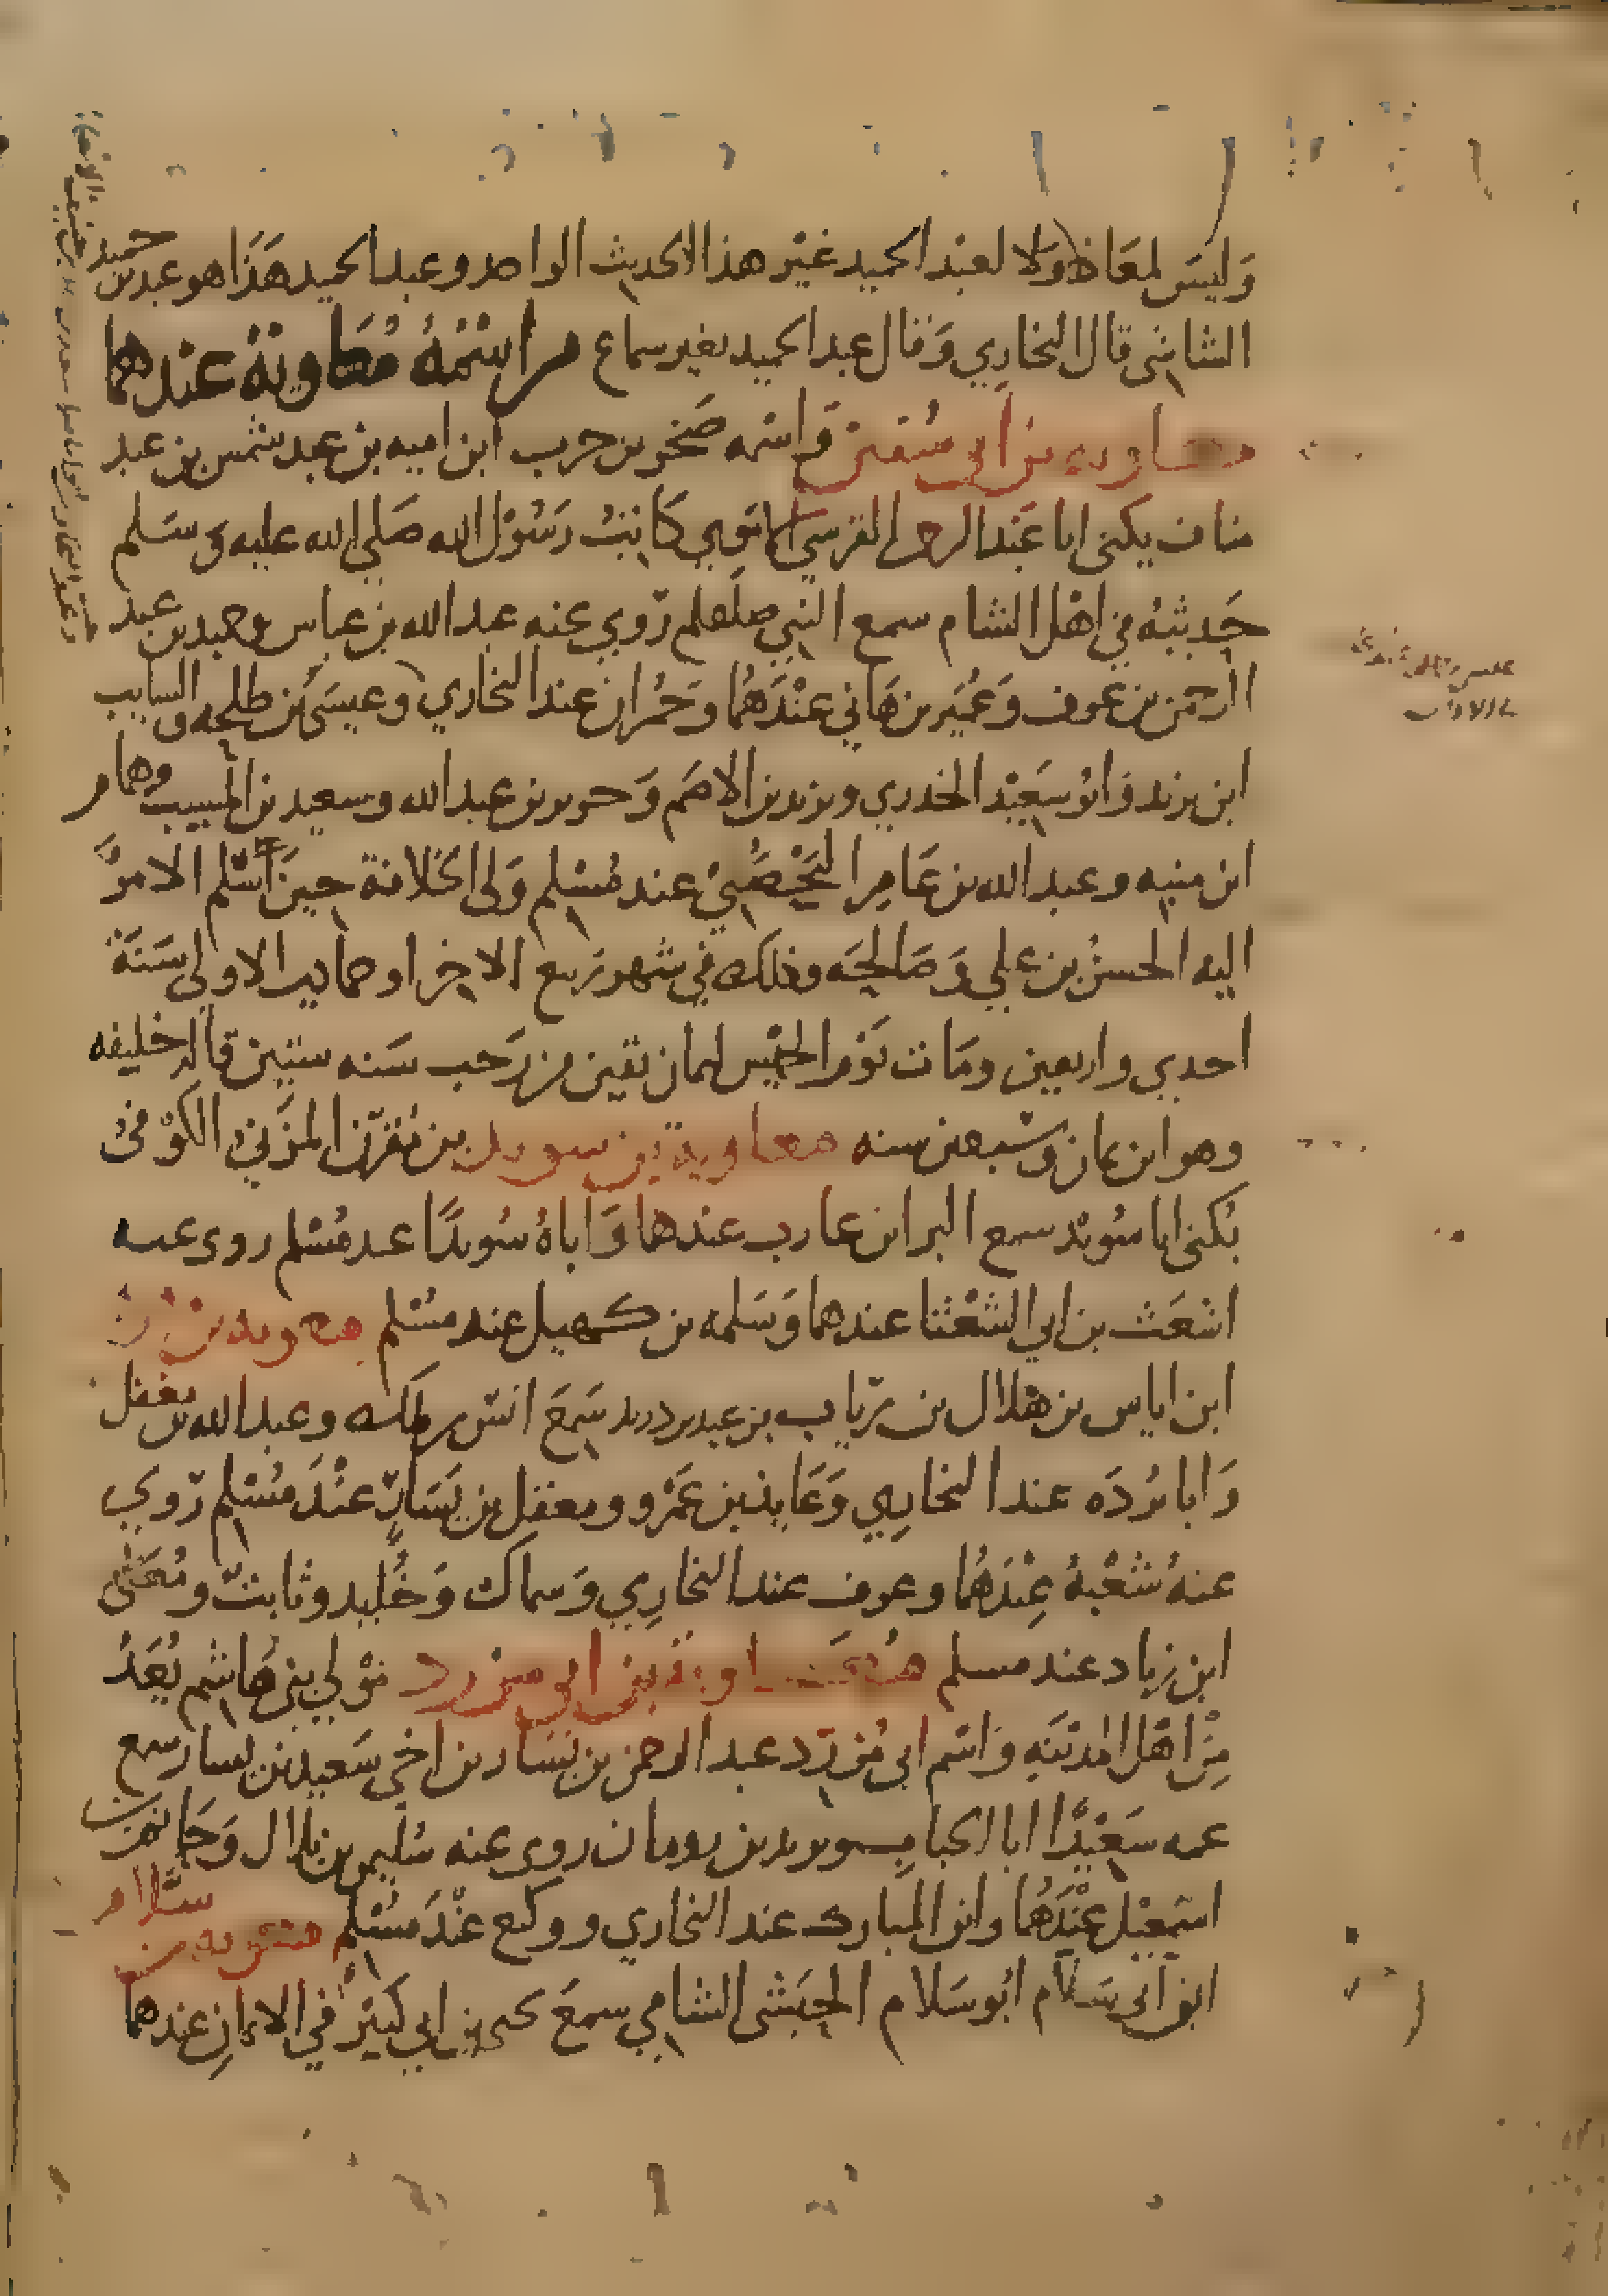 وَليسَ لمعَاذ وَلا لعبْد الحميد غيْر هذا الحديث الواحد وعبد الحميد هَذَا هو عبد بن حميد
الشاشى قال البخارِي وَقال عبد الحميد بغير سماع من اسْمُهُ مُعَاوِيَةُ عندهما
معاويه بن ابي سُفين وَاسمه صَخر بن حرب ابن اميه بن عبد شمس بن عبد
مناف يكنى ابا عَبْد الرحمن القرسي الاموي كَاتبُ رَسُوْل الله صَلي الله عليه وَسَلم
حَديثهُ في اهْل الشام سمع النبي صلعلم رَوي عنه عبد الله بن عباس وحميد بن عبد
الرحمن بن عَوف وَعُمَير بن هَاني عنْدَهمُا وَحُمران عند البخاري وعيسَى بن طلحه والسايب
ابن يزيد وَابُو سَعيْد الخدري ويزيد بن الاصَم وَجرير بن عبد الله وسعيد بن المسيب وهمام
ابن منبه وعبد الله بن عَامِر اليَحْصُبيْ عند مُسْلم وَلى الخلافة حينَ اَسْلم الامرَ
اليه الحسنُ بن علي وَصَالحَه وذلك في شهر رَبيع الاخِر او جمادي الاولي سَنَةَ
احدي واربعين ومَات يَوْم الخميس لثمان بقين من رَجب سَنه ستين قاله خليفه
وهو ابن ثمان وسَبعين سنه معاوية بن سويد بن مُقَرّن المزَنيْ الكوْفىْ
يُكنى ابا سُويْد سمع البرا بن عازب عندهما وَاباهُ سُويدًا عند مُسْلم روى عنه
اشعَث بن ابي الشعْثا عندهما وَسَلمه بن كهيل عند مسْلم معويه بن قره
ابن اياس بن هلال بن رياب بن عبيد بن دريد سَمعَ انسَ بن ملك وعبد الله بن مغفل
وَابا بُردَه عند البخارِي وَعَايذ بن عَمْرو ومعقل بن يَسَارٍ عنْدَ مُسْلم رَوي
عنهُ شعْبهُ عِنْدَهُما وعوف عند البخارِي وَسماك وَخُليد وثابت ومُعَلّى
ابن زياد عند مسلم مُعَاويَة بن ابي مزرد مَوْلي بنى هَاشم يُعَدُ
مِنْ اهْل المديْنَهِ وَاسْم ابى مُزَرّد عبد الرحمن بن يَسَار بن اخي سَعيد بن يسار سمع
عمه سَعيْدًا ابا الحباب ويزيد بن رومان روى عنه سُليمن بن بلال وَحَاتم بن
اسْمعيْل عنْدَهُمَا وابن المبارك عند البخاري ووكيع عنْدَ مُسْلم معويه بن سَلام
ابن ابى سَلاَم ابُو سَلام الحبَشى الشامي سمعَ يحيى بن ابي كثيرْ في الايمانِ عندهما